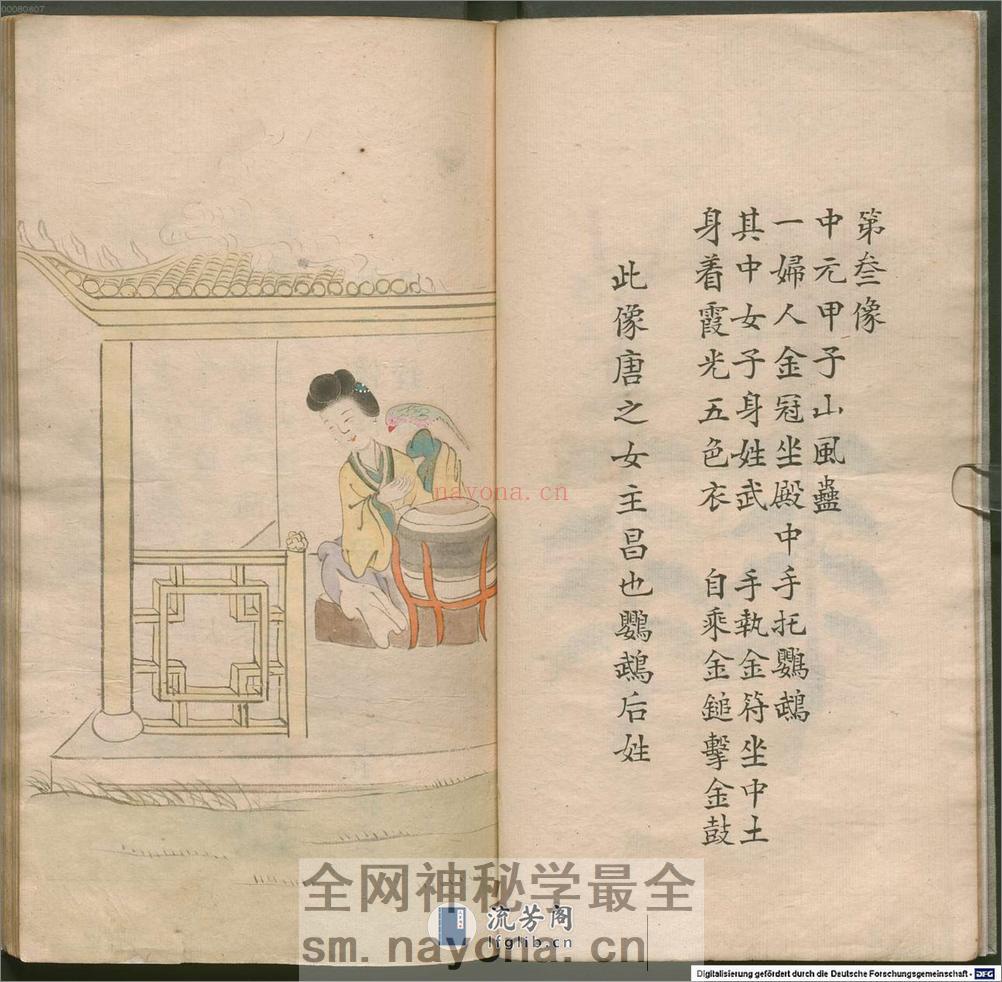 00080807
第叁像
中元甲子山風蠱
一婦人金冠坐殿中手托鸚鵡
其中女子身姓武 手執金符坐中土
身着霞光五色衣 自乘金鎚擊金鼓
此像唐之女主昌也鸚鵡后姓
nayona.cn
全网神秘学最全
流芳阁
lfglib.cn
sm.nayona.cn
Digitalisierung gefördert durch die Deutsche Forschungsgemeinschaft - DFG